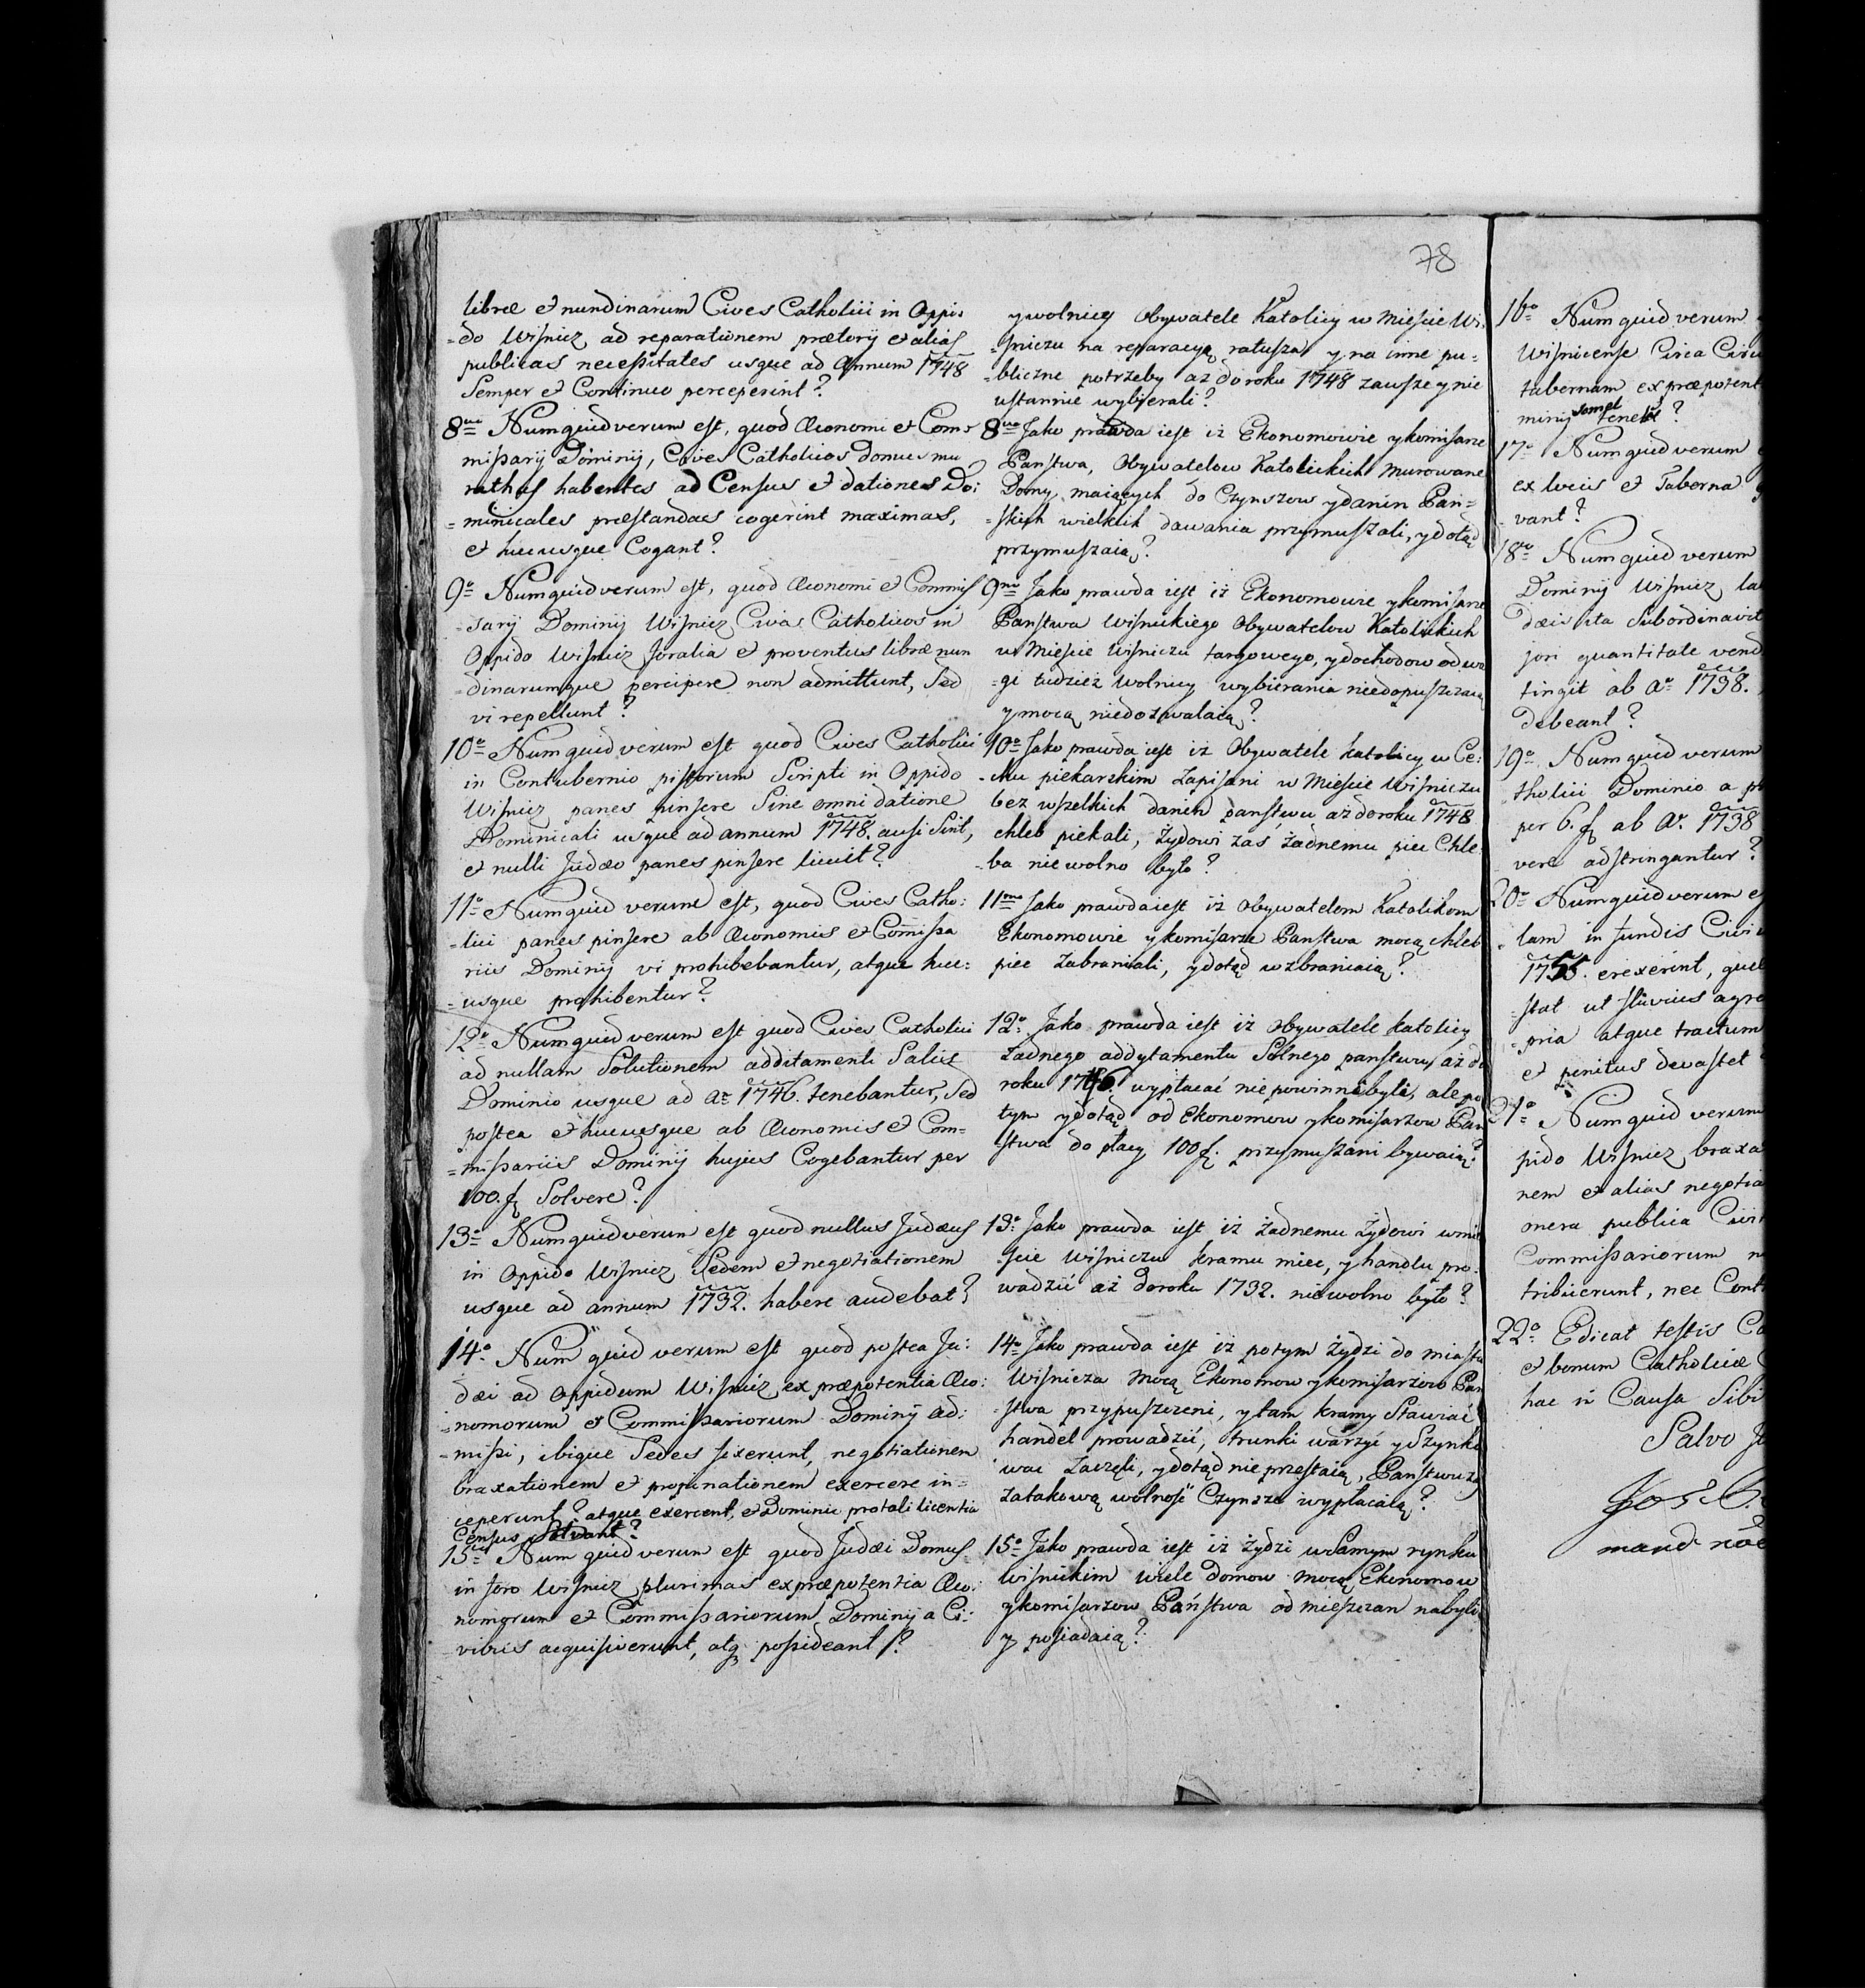 78
libræ et nundinarum Cives Catholici in Oppi-
-do Wisnicz ad reparationem prætorij et alias
publicas necessitates usque ad Annum 1748
Semper et Continuo perceperint?
8vo Numquid verum est, quod Œconomi et Com-
missarij Dominij, Cives Catholicos domus mu
rathas habentes ad Census et dationes Do:
=minicales præstandas cogerint maximas,
et hucusque Cogant?
9o Numquid verum est, quod Œconomi et Commis
-sarij Dominij Wisnicz Cives Catholicos in
Oppido Wisnicz foralia et proventus libræ nun
-dinarumque percipere non admittunt, Sed
vi repellunt?
10o Numquid verum est quod Cives Catholici
in Contubernio pistorum Scripti in Oppido
Wisnicz panes pinsere Sine omni datione
Dominicali usque ad annum 1748. ausi Sint,
et nulli Judæo panes pinsere licuit?
11o Numquid verum est, quod Cives Catho:
-lici panes pinsere ab Œconomis et Comissa
riis Dominij vi prohibebantur, atque huc:
=usque prohibentur?
12o Numquid verum est quod Cives Catholici
ad nullam Solutionem additamenti Salis
Dominio usque ad Ao 1746. tenebantur, Sed
postea et hucusque ab Œconomis et Com=
=missariis Dominij hujus Cogebantur per
100. f Solvere?
13o Numquid verum est quod nullus Judæus
in Oppido Wisnicz Sedem et negotiationem
usque ad annum 1732. habere audebat?
14o Num quid verum est quod postea Ju:
dæi ad Oppidum Wisnicz ex præpotentia Œco:
=nomorum et Commissariorum Dominij ad:
-missi, ibique Sedes fixerunt, negotiationem
braxationem et propinationem exercere in=
ceperunt? atque exercent, et Dominio pro tali licentia
Census Solvant?
15to Num quid verum est quod Judæi Domus
in foro Wisnicz plurimas ex præpotentia Œco:
nomorum et Commissariorum Dominij a Ci:
-vibus acquisiverunt, atq possideant?
y wolnicy Obywatele Katolicy w Miescie Wi-
-sniczu na reparacyą ratusza y na inne pu-
-bliczne potrzeby az do roku 1748 zawsze y nie
ustannie wybierali?
8vo Jako prawda iest iz Ekonomowie y komisarze
Panstwa, Obywatelow Katolickich murowane
Domy maiących do Czynszow y danin Pań=
-skich wielkich dawania przymuszali, y dotąd
przymuszaią?
9no Jako prawda iest iż Ekonomowie y komisarze
Panstwa Wisnickiego Obywatelow Katolickich
w Miescie Wisniczu targowego, y dochodow od wa
-gi tudzież Wolnicy wybierania niedopuszczaią
y mocą niedozwalaią?
10o Jako prawda iest iż Obywatele katolicy w Ce:
-chu piekarskim zapisani w Miescie Wisniczu
bez wszelkich danin panstwu aż do roku 1748
chleb piekali, Żydowi zaś żadnemu piec Chle-
-ba nie wolno było?
11mo Jako prawda iest iż Obywatelom Katolikom
Ekonomowie y komisarze Panstwa mocą chleb
piec zabraniali, y dotąd wzbraniaią?
12o Jako prawda iest iż Obywatele katolicy
żadnego addytamentu Solnego panstwu aż do
roku 1746. wypłacać nie powinni byli, ale po
tym y dotąd od Ekonomow y komisarzow Pan
-stwa do płacy 100 f. przymuszani bywaią?
13o Jako prawda iest iż żadnemu żydowi w mie
-scie Wisniczu kramu miec, y handlu pro-
wadzić aż do roku 1732. nie wolno było?
14o Jako prawda iest iż potym żydzi do miasta
Wisnicza mocą Ekonomow y komisarzow Pan
-stwa przypuszczeni, y tam kramy Stawiać
handel prowadzić, trunki warzyć y Szynko
wac zaczęli, y dotąd nie przestaią, Panstwu zaś
za takową wolność Czynsze wypłacaią?
15o Jako prawda iest iż żydzi w Samym rynku
Wisnickim wiele Domow mocą Ekonomow
y komisarzow Państwa od mieszczan nabyli
y posiadaią?
16o Numquid verum
Wisnicense Circa Civi
tabernam ex præpotent
minij tenet?
17o Numquid verum
ex locis et Taberna
vant?
18vo Numquid verum
Dominij Wisnicz la
dæis ita Subordinavit
jori quantitate vend
tingit ab Ao 1738.
debeant?
19o Numquid verum
tholici Dominio a
per 6. f ab Ao 1738
vere adstringantur?
20o Numquid verum e
lam in fundis Civi
1755. erexerint, que
stat ut fluvius agro
-pria atque tractum
et penitus devastet
21o Numquid verum
pido Wisnicz braxa
nem et alias negotia
onera publica Civi
Commissariorum n
tribuerunt, nec Cont
22o Edicat testis Ca
et bonum Catholicæ
hac in Causa Sibi
Salvo J